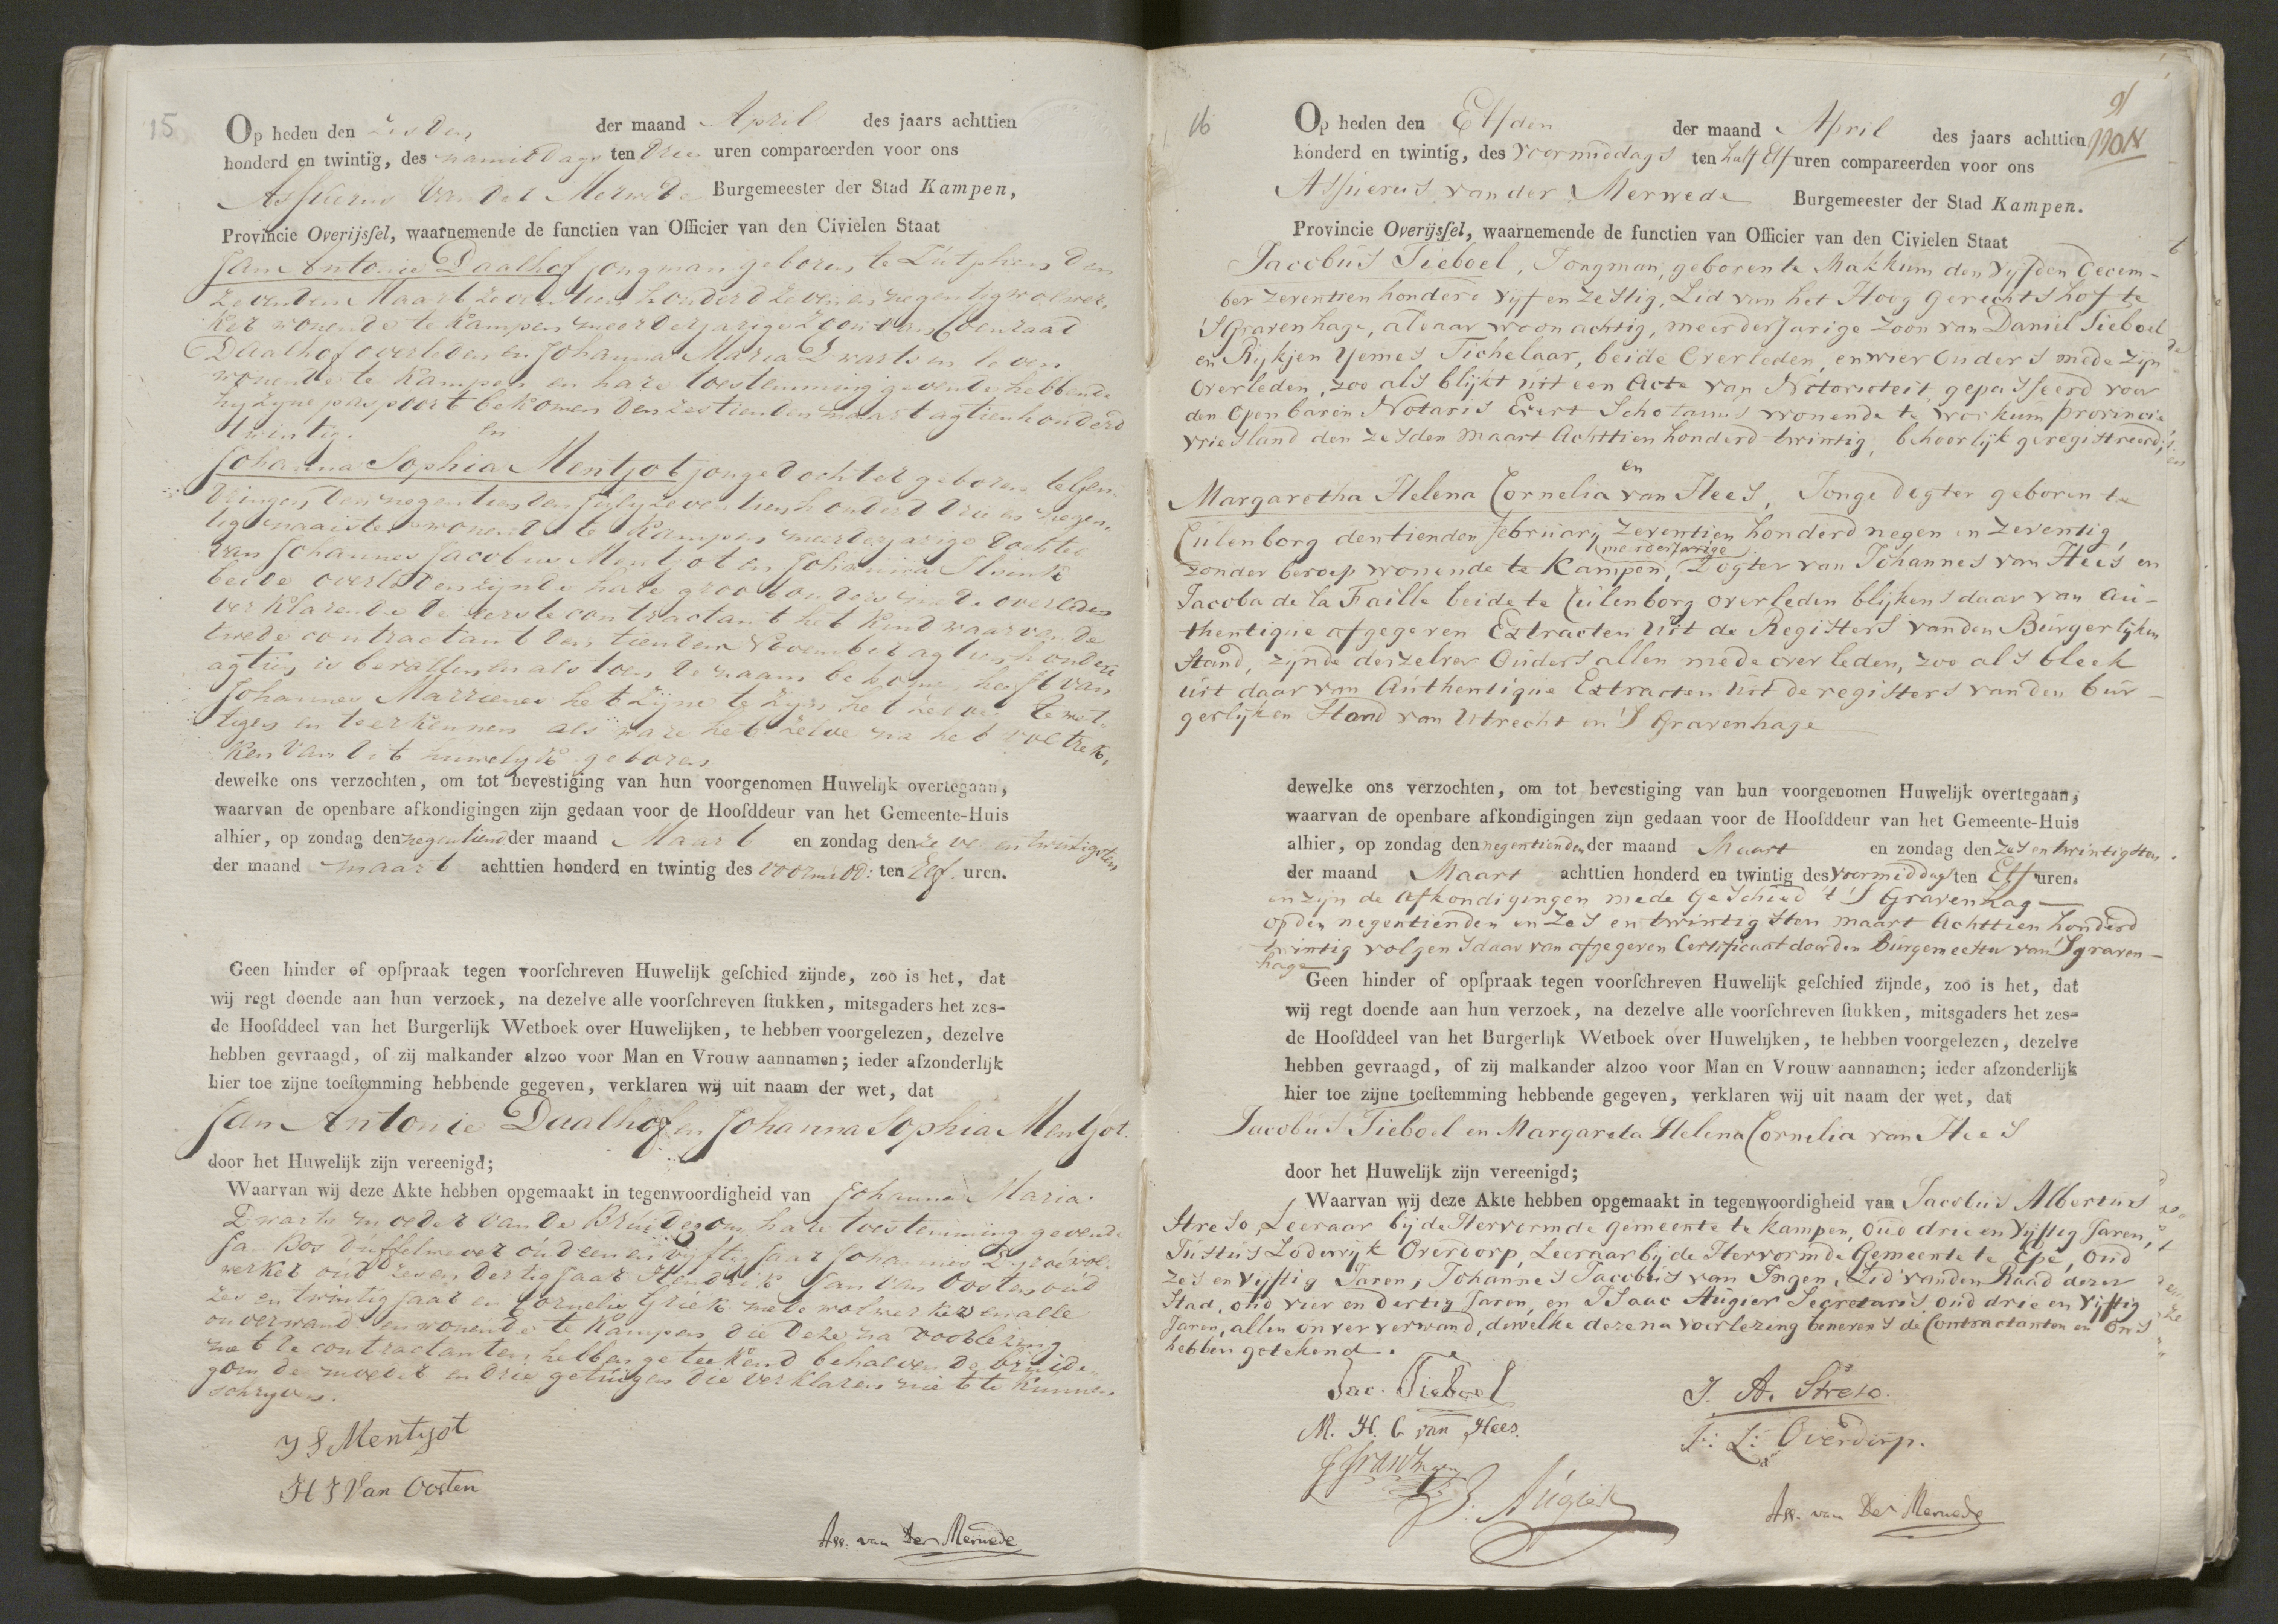 15
Op heden den zesden der maand April des jaars achttien
honderd en twintig, des namiddags ten drie uren compareerden voor ons
Assuerus van der Merwede Burgemeester der Stad Kampen,
Provincie Overijssel, waarnemende de functien van Officier van den Civielen Staat
Jan Antonie Daalhof jongman geboren te Zutphen den
zevenden Maart zeventien honderd zeven en negentig wolwer,
ker wonende te Kampen meerderjarige zoon van Coenraad
Daalhof overleden en Johanna Maria Zwarts in leven
wonende te Kampen en hare toestemming gevende hebbende
hij zijne paspoort bekomen den zestienden maart agtienhonderd
twintig.
en
Johanna Sophia Mentjot jonge dochter geboren te
den negentienden july zeventien honderd drie en negen,
tig naaister wonende te Kampen meerderjarige dochter
van Johannes Jacobus Mentjot en Johanna
beide overleden zijnde hare grootouders mede overleden
verklarende de eerste contractant het kind waarvan de
twede contractant den tienden November agtienhonderd
agtien is bevallen en als toen de naam bekomen heeft van
Johannes het zijne te zijn het zelve te wet,
tigen en te erkennen als ware het zelve na het voltrek,
ken van dit huwelijk geboren
dewelke ons verzochten, om tot bevestiging van hun voorgenomen Huwelijk overtegaan,
waarvan de openbare afkondigingen zijn gedaan voor de Hoofddeur van het Gemeente-Huis
alhier, op zondag den negentiend der maand Maart en zondag den ze en twintigsten
der maand maart achttien honderd en twintig des voormidd: ten Elf uren.
Geen hinder of opspraak tegen voorschreven Huwelijk geschied zijnde, zoo is het, dat
wij regt doende aan hun verzoek, na dezelve alle voorschreven stukken, mitsgaders het zes-
de Hoofddeel van het Burgerlijk Wetboek over Huwelijken, te hebben voorgelezen, dezelve
hebben gevraagd, of zij malkander alzoo voor Man en Vrouw aannamen; ieder afzonderlijk
hier toe zijne toestemming hebbende gegeven, verklaren wij uit naam der wet, dat
Jan Antonie Daalhof en Johanna Sophia Mentjot.
door het Huwelijk zijn vereenigd;
Waarvan wij deze Akte hebben opgemaakt in tegenwoordigheid van Johanna Maria
Zwarts moeder van de Bruidegom hare toestemming gevende
Jan Bos duffelwever oud een en vijftig jaar Johannes wol,
werker oud zes en dertig jaar Hendrik Jan van Oosten oud
zes en twintig jaar en Cornelis Griek mede wolwerker en alle
onverwand en wonende te Kampen die deze na voorlezing
met de contractanten hebben geteekend behalven de bruide,
gom de moeder en drie getuigen die verklaren niet te kunnen
schrijven.
J S Mentjot
H J Van Oosten
Ass. van Der Merwede
16
9
Op heden den Elfden der maand April des jaars achttien
honderd en twintig, des voormiddags ten half Elf uren compareerden voor ons
Assuerus van der Merwede Burgemeester der Stad Kampen.
Provincie Overijssel, waarnemende de functien van Officier van den Civielen Staat
Jacobus Tieboel, Jongman, geboren te Makkum den vijfden Decem-
ber zeventien honderd vijf en zestig, Lid van het Hoog Gerechtshof te
's Gravenhage, aldaar woonachtig, meerderjarige zoon van Daniel Tieboel
en Rijkjen Yemes Tichelaar, beide Overleden, en wier Ouders mede zijn
overleden, zoo als blijkt uit een Acte van Notorieteit, gepasseerd voor
den Openbaren Notaris Evert Schotanus wonende te Workum provincie
Vriesland den zesden Maart Achttien honderd twintig, behoorlijk geregistreerd;
en
Margaretha Helena Cornelia van Hees, Jonge Dogter geboren te
Cuilenborg den tienden february zeventien honderd negen en zeventig,
zonder beroep wonende te Kampen, meerderjarige Dogter van Johannes van Hees en
Jacoba de la Faille beide te Cuilenborg overleden blijkens daar van Au-
thentique afgegeven Extracten uit de Registers van den Burgerlijken
Stand, zijnde derzelver Ouders allen mede overleden, zoo als bleek
uit daar van Authentique Extracten uit de registers van den bur-
gerlijken Stand van Utrecht en 's Gravenhage
dewelke ons verzochten, om tot bevestiging van hun voorgenomen Huwelijk overtegaan,
waarvan de openbare afkondigingen zijn gedaan voor de Hoofddeur van het Gemeente-Huis
alhier, op zondag den negentienden der maand Maart en zondag den zes en twintigsten
der maand Maart achttien honderd en twintig des voormiddags ten Elf uren.
en zijn de afkondigingen mede Geschied 't 's Gravenhag
op den negentienden en zes en twintigsten maart Achttien honderd
twintig volgens daar van afgegeven Certificaat door den Burgemeester van 's graven-
hage
Geen hinder of opspraak tegen voorschreven Huwelijk geschied zijnde, zoo is het, dat
wij regt doende aan hun verzoek, na dezelve alle voorschreven stukken, mitsgaders het zes-
de Hoofddeel van het Burgerlijk Wetboek over Huwelijken, te hebben voorgelezen, dezelve
hebben gevraagd, of zij malkander alzoo voor Man en Vrouw aannamen; ieder afzonderlijk
hier toe zijne toestemming hebbende gegeven, verklaren wij uit naam der wet, dat
Jacobus Tieboel en Margareta Helena Cornelia van Hees
door het Huwelijk zijn vereenigd;
Waarvan wij deze Akte hebben opgemaakt in tegenwoordigheid van Jacobus Albertus
Streso, Leeraar bij de Hervormde gemeente te Kampen, oud drie en vijftig Jaren,
Justus Lodewijk Overdorp, Leeraar bij de Hervormde Gemeente te Epe, oud
zes en vijftig Jaren, Johannes Jacobus van Ingen, Lid van den Raad dezer
Stad, oud vier en dertig Jaren, en Isaac Augier Secretaris oud drie en vijftig
Jaren, allen onververwand, dewelke deze na voorlezing benevens de Contractanten en ons
hebben getekend.
Jac. Tieboel
J. A. Streso.
M. H. C. van Hees.
J: L: Overdorp.
J. Augier
Ass. van Der Merwede